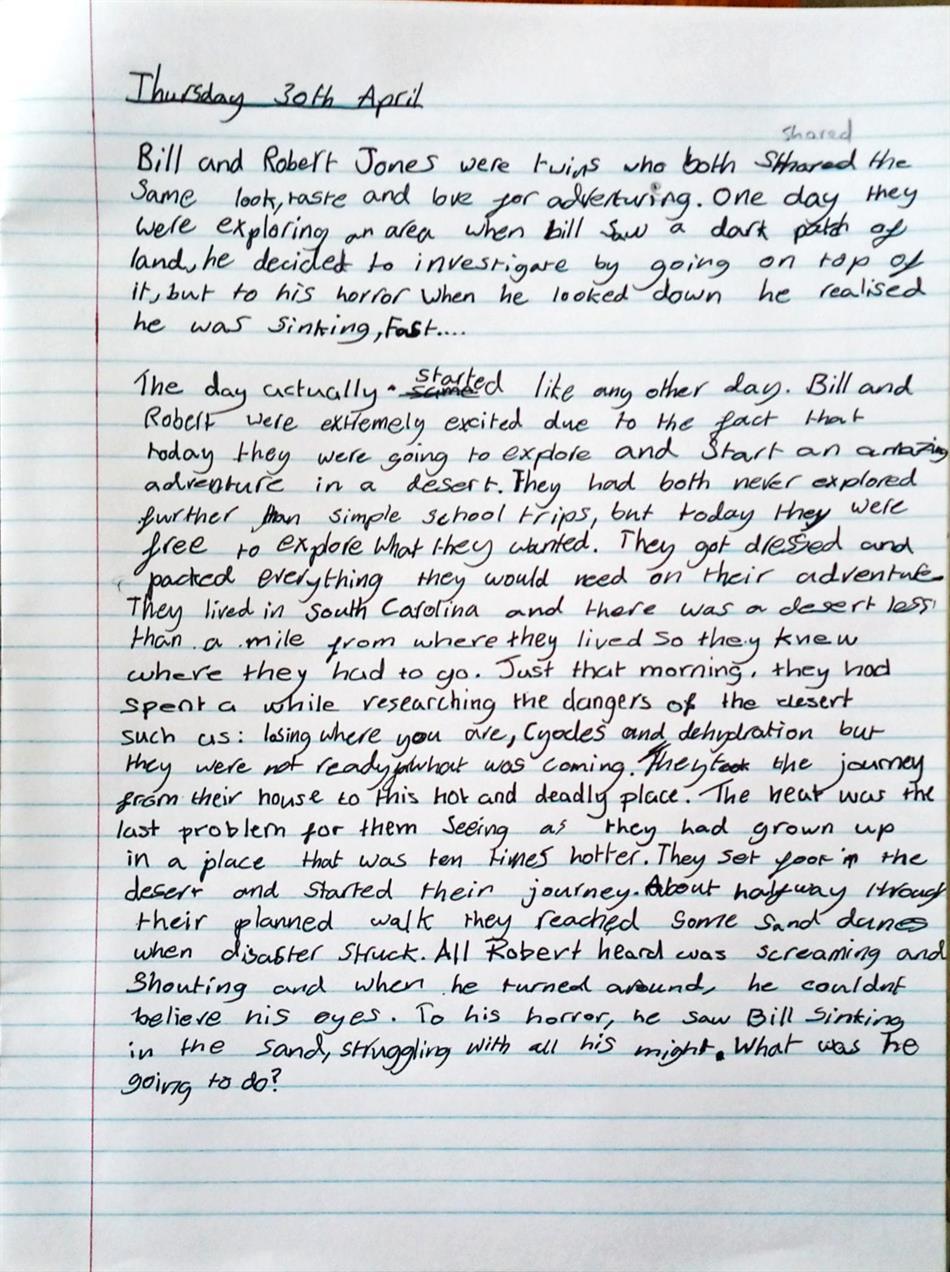 Thursday 30th April
shared
Bill and Robert Jones were twins who both shared the
same look, taste and love for adverturing. One day they
were exploring an area when bill saw a dark patch of
land, he decided to investigate by going on top of
it, but to his horror when he looked down he realised
he was sinking, Fast....
The day actually started like any other day. Bill and
Robert were extremely excited due to the fact that
today they were going to explore and start an amazing
adventure in a desert. They had both never explored
further than simple school trips, but today they were
free to explore what they wanted. They got dressed and
packed everything they would need on their adventure
They lived in South Carolina and there was a desert less
than a mile from where they lived so they knew
where they had to go. Just that morning, they had
spent a while researching the dangers of the desert
such as: losing where you are, and dehydration but
they were not ready what was coming. They took the journey
from their house to this hot and deadly place. The heat was the
last problem for them seeing as they had grown up
in a place that was ten times hotter. They set foot in the
desert and started their journey. About halfway through
their planned walk they reached some sand dunes
when disaster struck. All Robert heard was screaming and
shouting and when he turned around, he couldnt
believe his eyes. To his horror, he saw Bill sinking
in the sand, struggling with all his might. What was he
going to do?